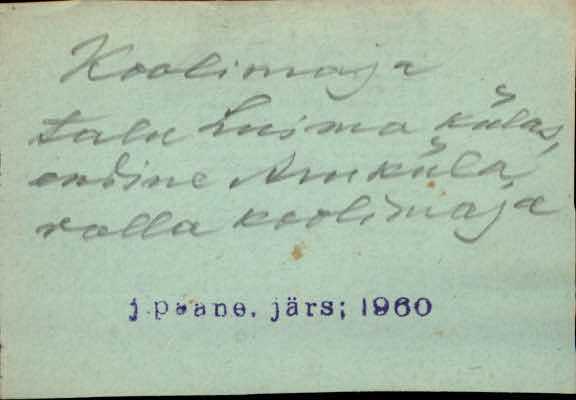 Koolimaja
talu Luisma külas,
endine Aruküla,
valla koolimaja
j.peane. järs; 1960